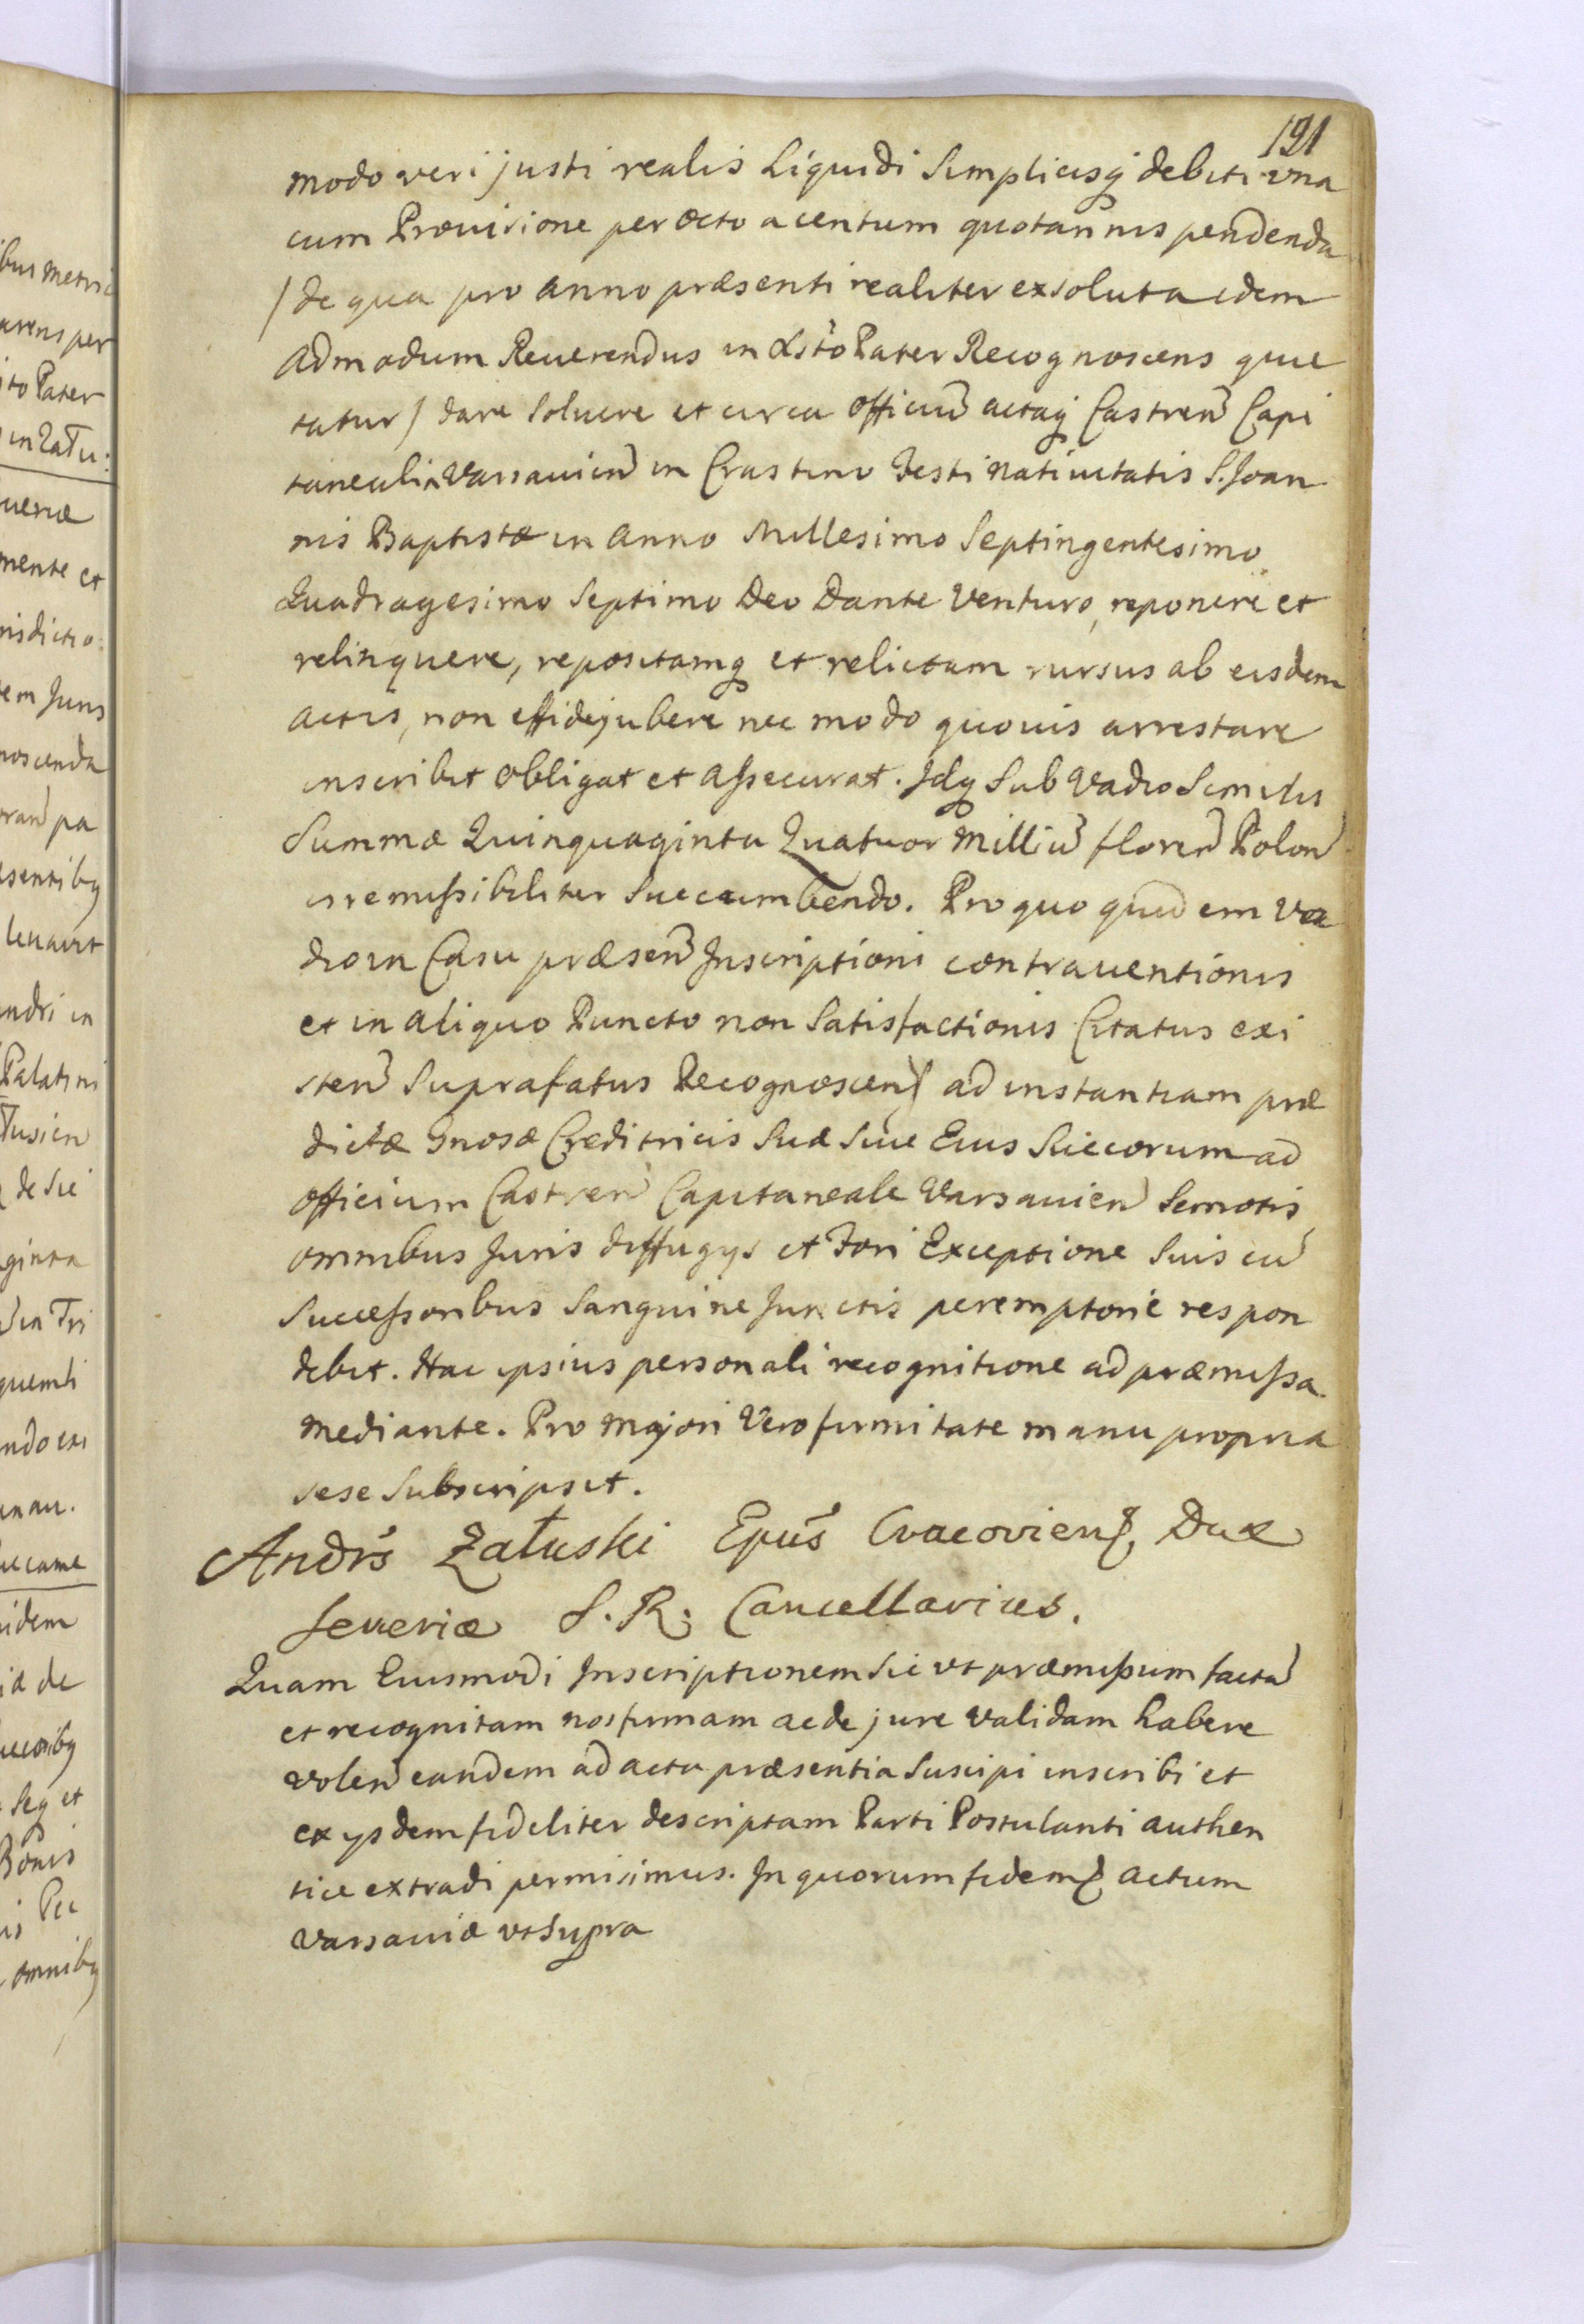 191
modo veri justi realis Liquidi Simplicisq debiti vna
cum Prouisione per octo a centum quotannis pendenda
/de qua pro anno præsenti realiter exsoluta idem
Admodum Reuerendus in Xsto Pater Recognoscens quie
tatur/ dare Soluere et circa Officiu actaq Castren Capi
tanealia Varsauien in Crastino Festi Natiuitatis S. Joan
nis Baptistæ in Anno Millesimo Septingentesimo
Quadragesimo Septimo Deo Dante Venturo, reponere et
relinquere, repositamq et relictam rursus ab eisdem
actis, non effidejubere nec modo quouis arrestare
inscribit obligat et assecurat. Jdq Sub Vadio Similis
Summæ Quinquaginta Quatuor Milliu floren Polon
irremissibiliter Succumbendo. Pro quo quidem va
dio in Casu præsen Jnscriptioni contrauentionis
et in aliquo Puncto non Satisfactionis Citatus exi
sten Suprafatus Recognoscens ad instantiam præ
dictæ Gnosæ Creditricis Suæ Siue Eius Succorum ad
Officium Castren Capitaneale Varsauien Semotis
omnibus Juris diffugys et Fori Exceptione Suis cu
Successoribus Sanguine Junctis peremptorie respon
debit. Hac ipsius personali recognitione ad præmissa
mediante. Pro Majori Vero firmitate manu propria
sese Subscripsit.
Andrs Załuski Epus Cracoviens, Dux
Severiæ S. R. Cancellarius.
Quam Eiusmodi Jnscriptionem Sic vt præmissum facta
et recognitam nos firmam ac de jure validam habere
volen eandem ad acta præsentia Suscipi inscribi et
ex ysdem fideliter descriptam Parti Postulanti authen
tice extradi permisimus. Jn quorum fidem actum
Varsauiæ vt Supra